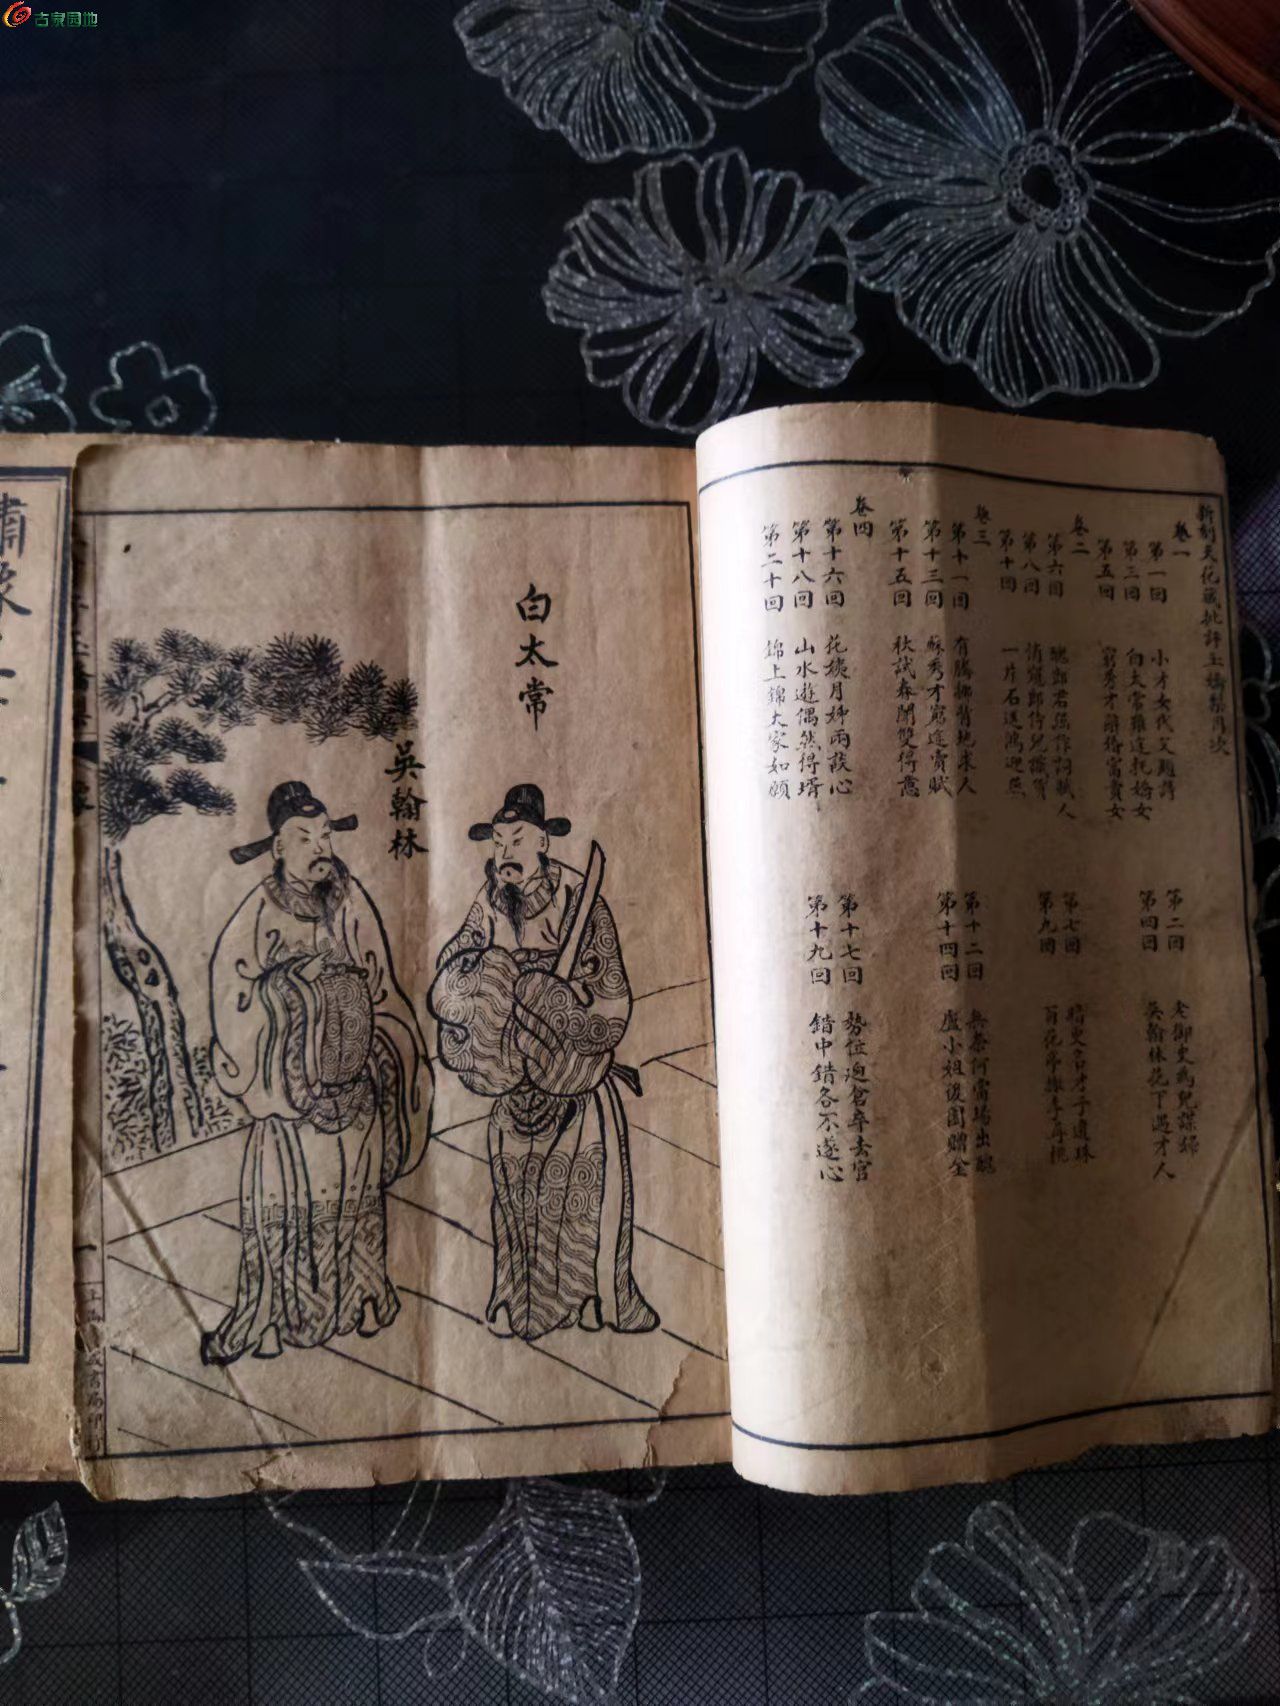 古泉园地
新刻天花藏批評玉嬌梨目次
卷一
第一回 小才女代父題詩
第二回 老御史為兒謀婦
第三回 白太常難途托嬌女
第四回 吳翰林花下遇才人
第五回 窮秀才辭婚富貴女
卷二
第六回 醜郎君強作詞賦人
第七回 暗更名才子遺珠
第八回 悄窺郎侍兒識貨
第九回 百花亭撇李尋桃
第十回 一片石送鴻迎燕
卷三
第十一回 有騰那背地求人
第十二回 無奈何當場出醜
第十三回 蘇秀才窮途賣賦
第十四回 盧小姐後園贈金
第十五回 秋試春闈雙得意
卷四
第十六回 花姨月姊兩談心
第十七回 勢位迫倉卒去官
第十八回 山水遊偶然得壻
第十九回 錯中錯各不遂心
第二十回 錦上錦大家如願
白太常
吳翰林
一
書局印
繡像